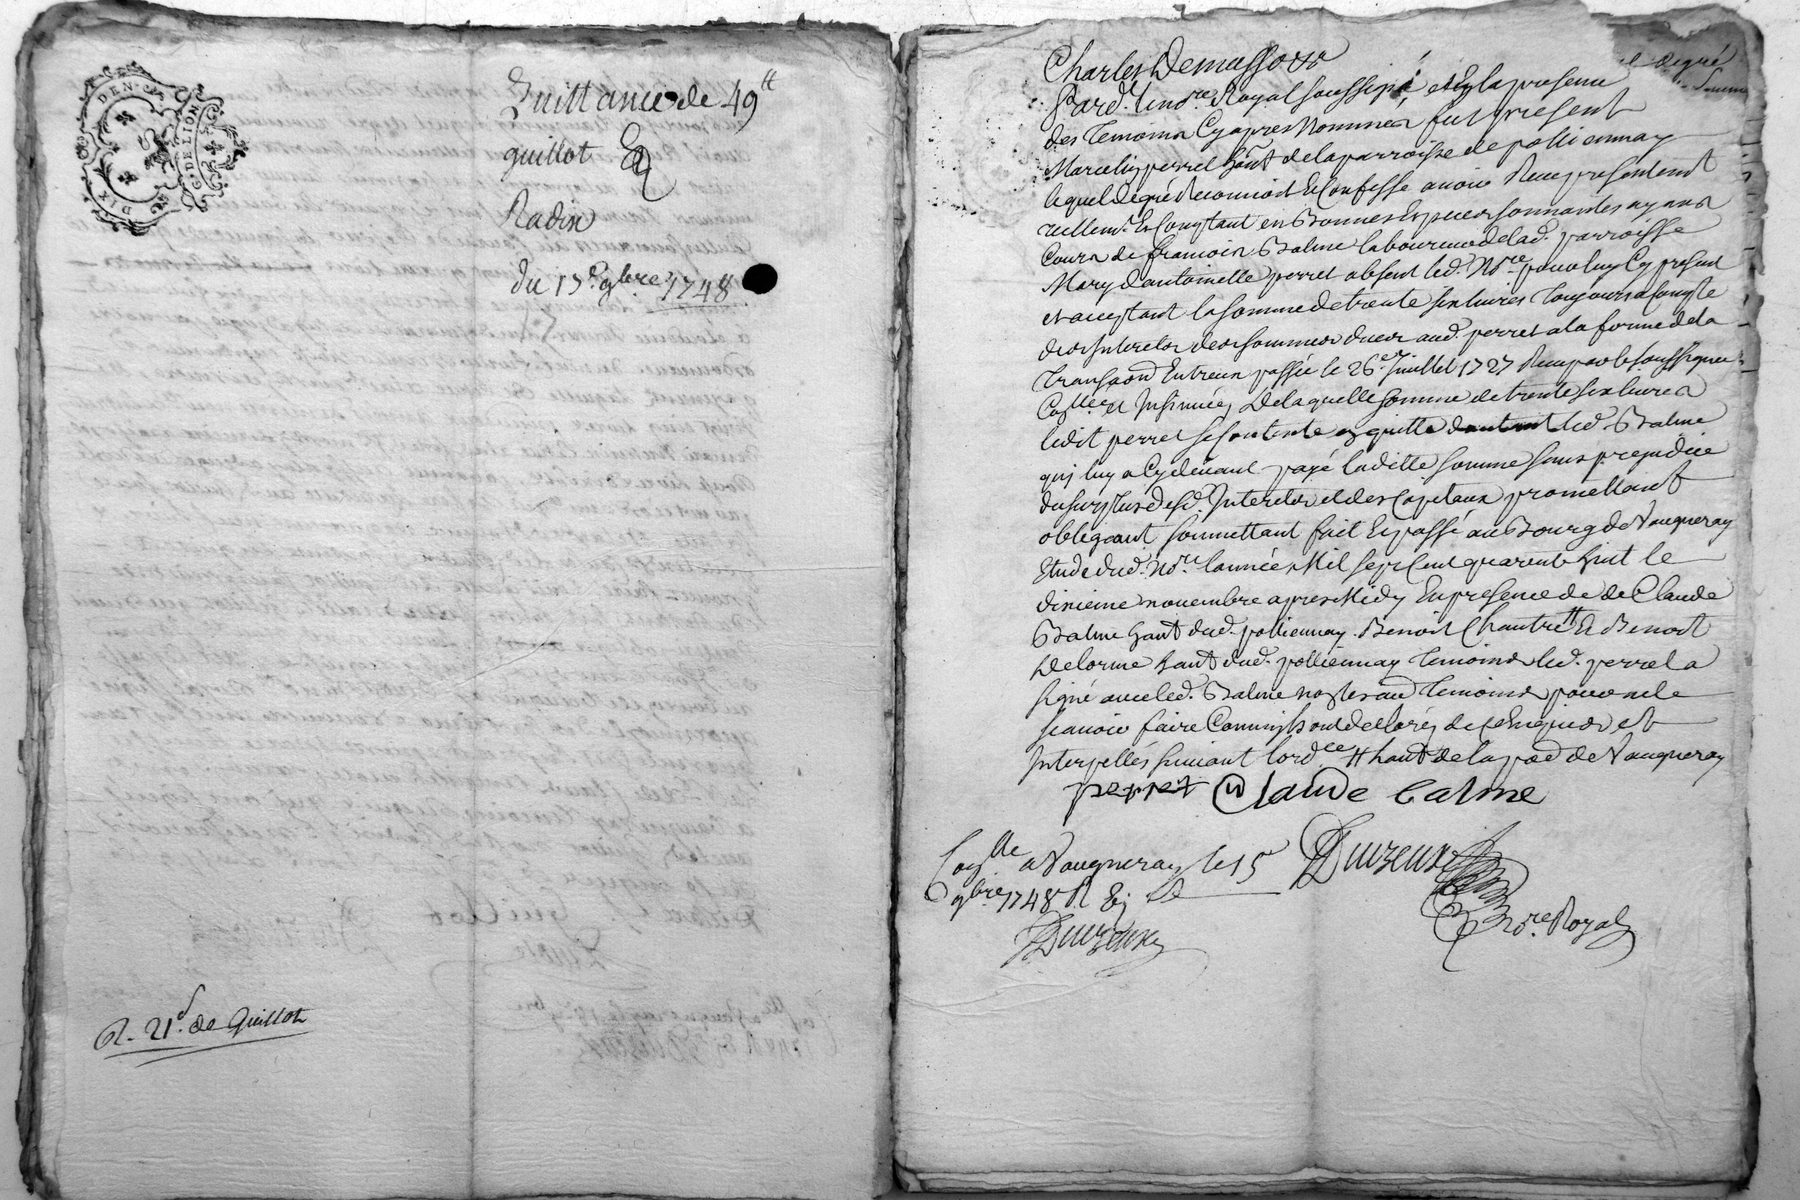 DIX DEN.ers
G. DE LION
Quittance de 49 tt
guillot Et
Radix
du 15e 9bre 1748
R. 21 d. de Guillot
Pard.t le no.re Royal soussigné et En la presence
des Temoins Cy apres Nommés fut present
Marcelin perret hant de la parroisse de pollionnay
lequel de gré Reconnoit Et Confesse avoir Receu presentemt
reellemt. Et Comptant en Bonnes Especes sonnantes ayans
Cours de françois Balme laboureur de lad. parroisse
Mary d'antoinette perret absent led. No.re pour luy Cy present
et acceptant la somme de trente six livres Toujours a Compte
des Interets des sommes dues aud. perret a la forme de la
Transaon Entreux passée le 26e Juillet 1727 Receu par le soussigné
Conllée et Insinuée, De laquelle somme de trente six livres
ledit perret se Contente et quitte led. Balme
qui luy a Cy devant payé laditte somme sans prejudice
du surplus desd. Interets et des Capitaux promettant
obligeant soumettant fait Et passé au Bourg de Vaugneray
Etude dud. No.re l'année Mil sept Cent quarente huit le
dixieme novembre apres Midy En presence de de Claude
Balme hant dud. pollionnay. Benoit Chautre tt Et Benoit
Delorme hant dud. pollionnay Temoins led. perret a
signé avec led. Balme non les aud Temoins pour ne le
scavoir faire Comm'ils ont declaré de ce Enquis et
Interpellés suivant lord.ce tt hant de la poe de Vaugneray
perret Claude balme
Conlle a Vaugneray le 15
9bre 1748 R
Duvzeux
No.re Royal